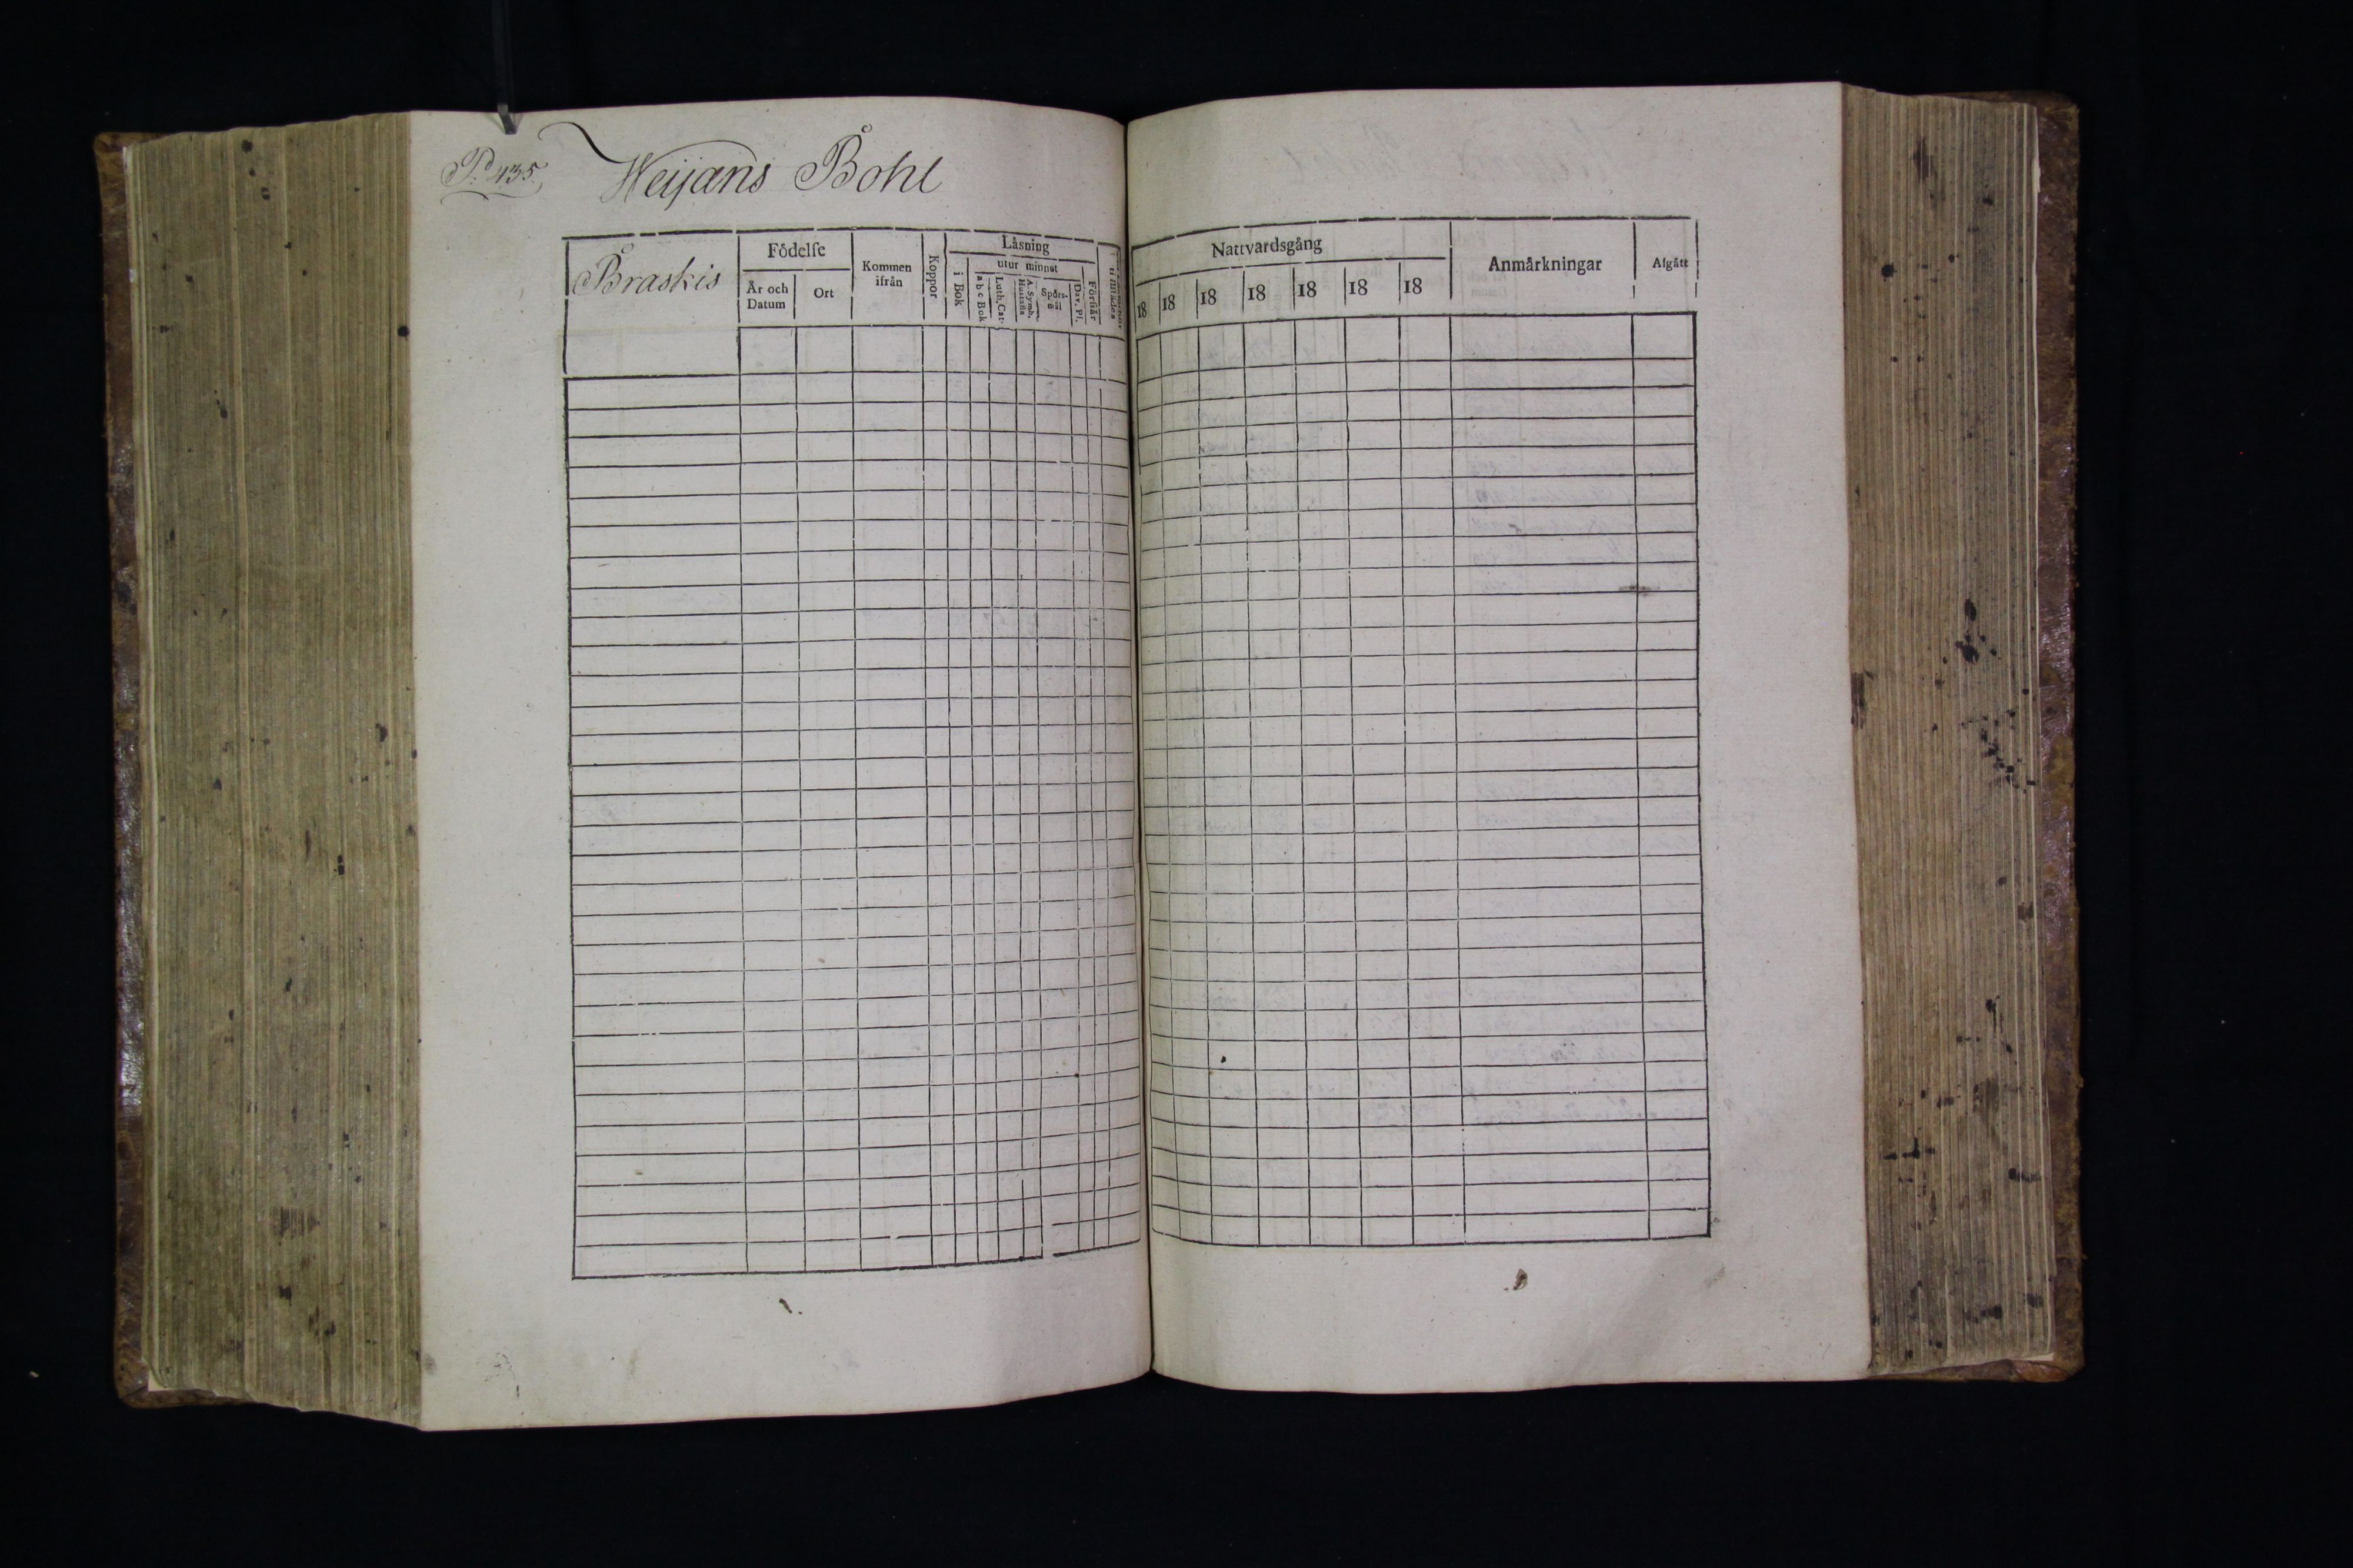 P: 435.
Weijans Bohl
Braskis
Födelse
År och
Datum
Ort
Kommen
ifrån
Koppor
Låsning
i Bok
utur minnet
a b c Bok
Luth. Cat.
A. Symb.
Hustafla
Spörs-
mål
Dav. Pſ.
Förſtår
Nattvardsgång
18 18 18 18 18 18 18
Anmårkningar
Afgått